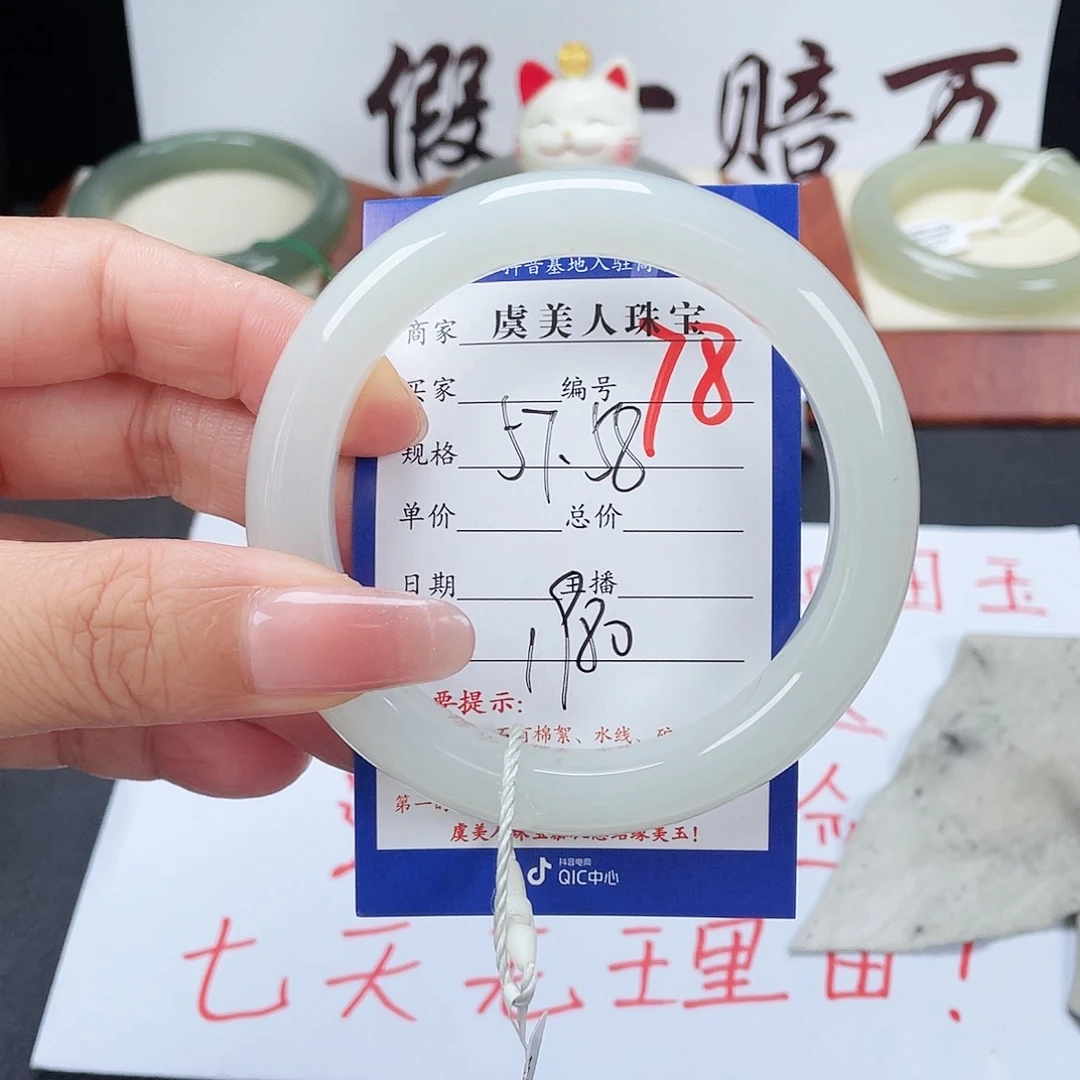 假一赔万
抖音基地入驻商
商家 虞美人珠宝
买家 编号 78
规格 57.58
单价 总价
日期 主播
1980
要提示:
棉絮、水线、矿
第一
虞美人珠宝 结缘美玉!
抖音电商
QIC中心
田玉
七天无理由!